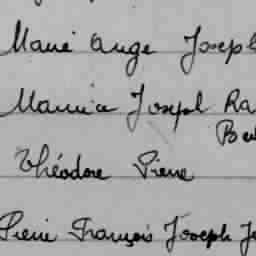 Marie Ange Joseph
Maurice Joseph Ra
Théodore Pierre
Pierre François Joseph